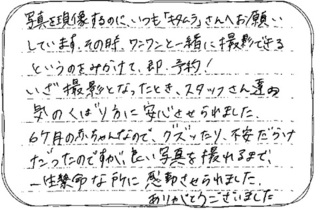 写真を現像するのに、いつも「キタムラ」さんへお願い
しています。その時、ワンワンと一緒に撮影できる
というのをみかけて、即、予約!
いざ撮影となったとき、スタッフさん達の
気のくばり方に安心させられました。
6ケ月の赤ちゃんなので、グズッたり、不安だらけ
だったのですが、良い写真を撮れるまで、
一生懸命な所に感動させられました。
ありがとうございました